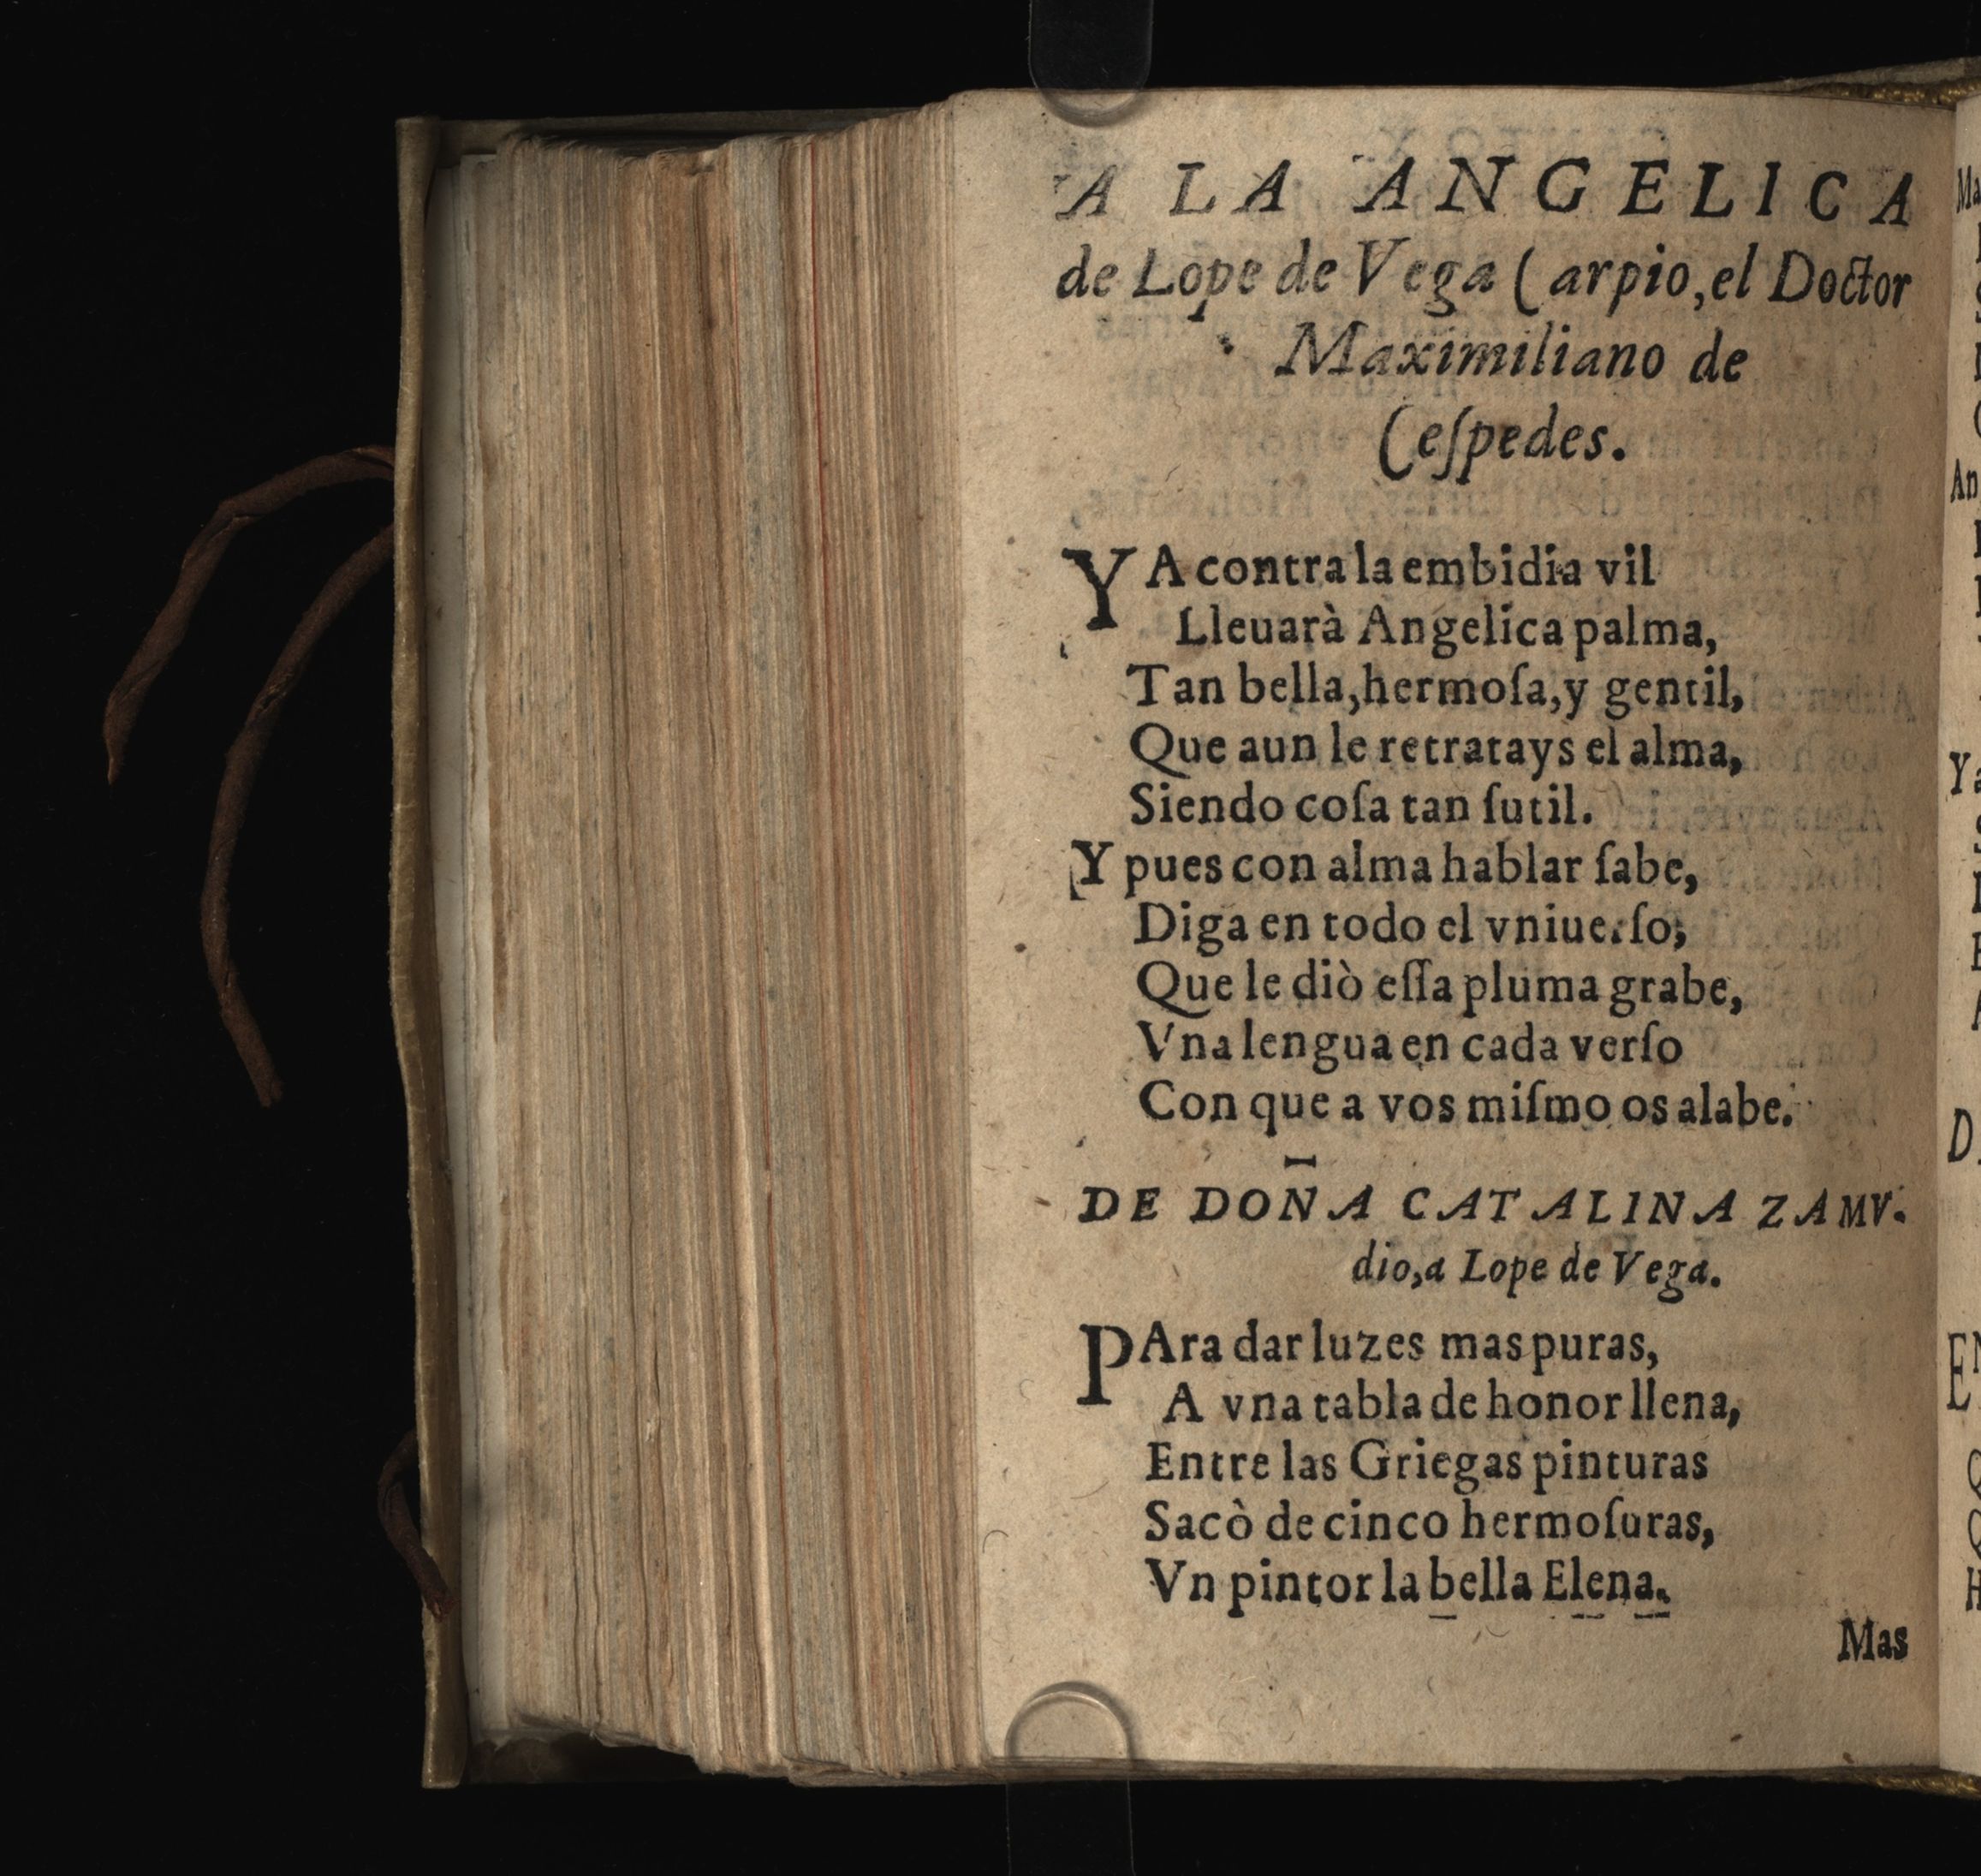 A LA ANGELICA
de Lope de Vega Carpio, el Doctor
Maximiliano de
Ceſpedes.
YA contra la embidia vil
Lleuarà Angelica palma,
Tan bella, hermoſa, y gentil,
Que aun le retratays el alma,
Siendo coſa tan ſutil.
Y pues con alma hablar ſabe,
Diga en todo el vniuerſo,
Que le diò eſſa pluma grabe,
Vna lengua en cada verſo
Con que a vos miſmo os alabe.
DE DOÑA CATALINA ZAMV-
dio, a Lope de Vega.
PAra dar luzes mas puras,
A vna tabla de honor llena,
Entre las Griegas pinturas
Sacò de cinco hermoſuras,
Vn pintor la bella Elena.
Mas